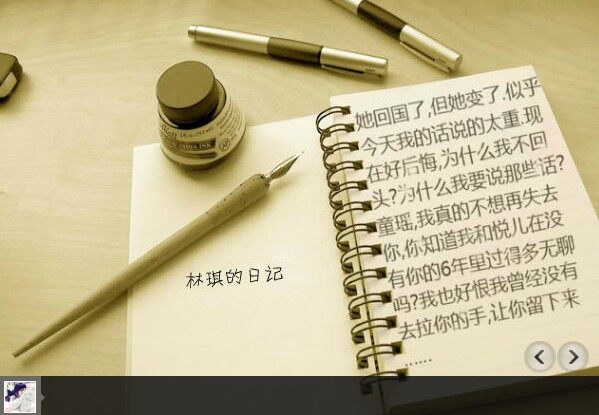 林琪的日记
她回国了,但她变了.似乎
今天我的话说的太重.现
在好后悔,为什么我不回
头?为什么我要说那些话?
童瑶,我真的不想再失去
你,你知道我和悦儿在没
有你的6年里过得多无聊
吗?我也好恨我曾经没有
去拉你的手,让你留下来
......